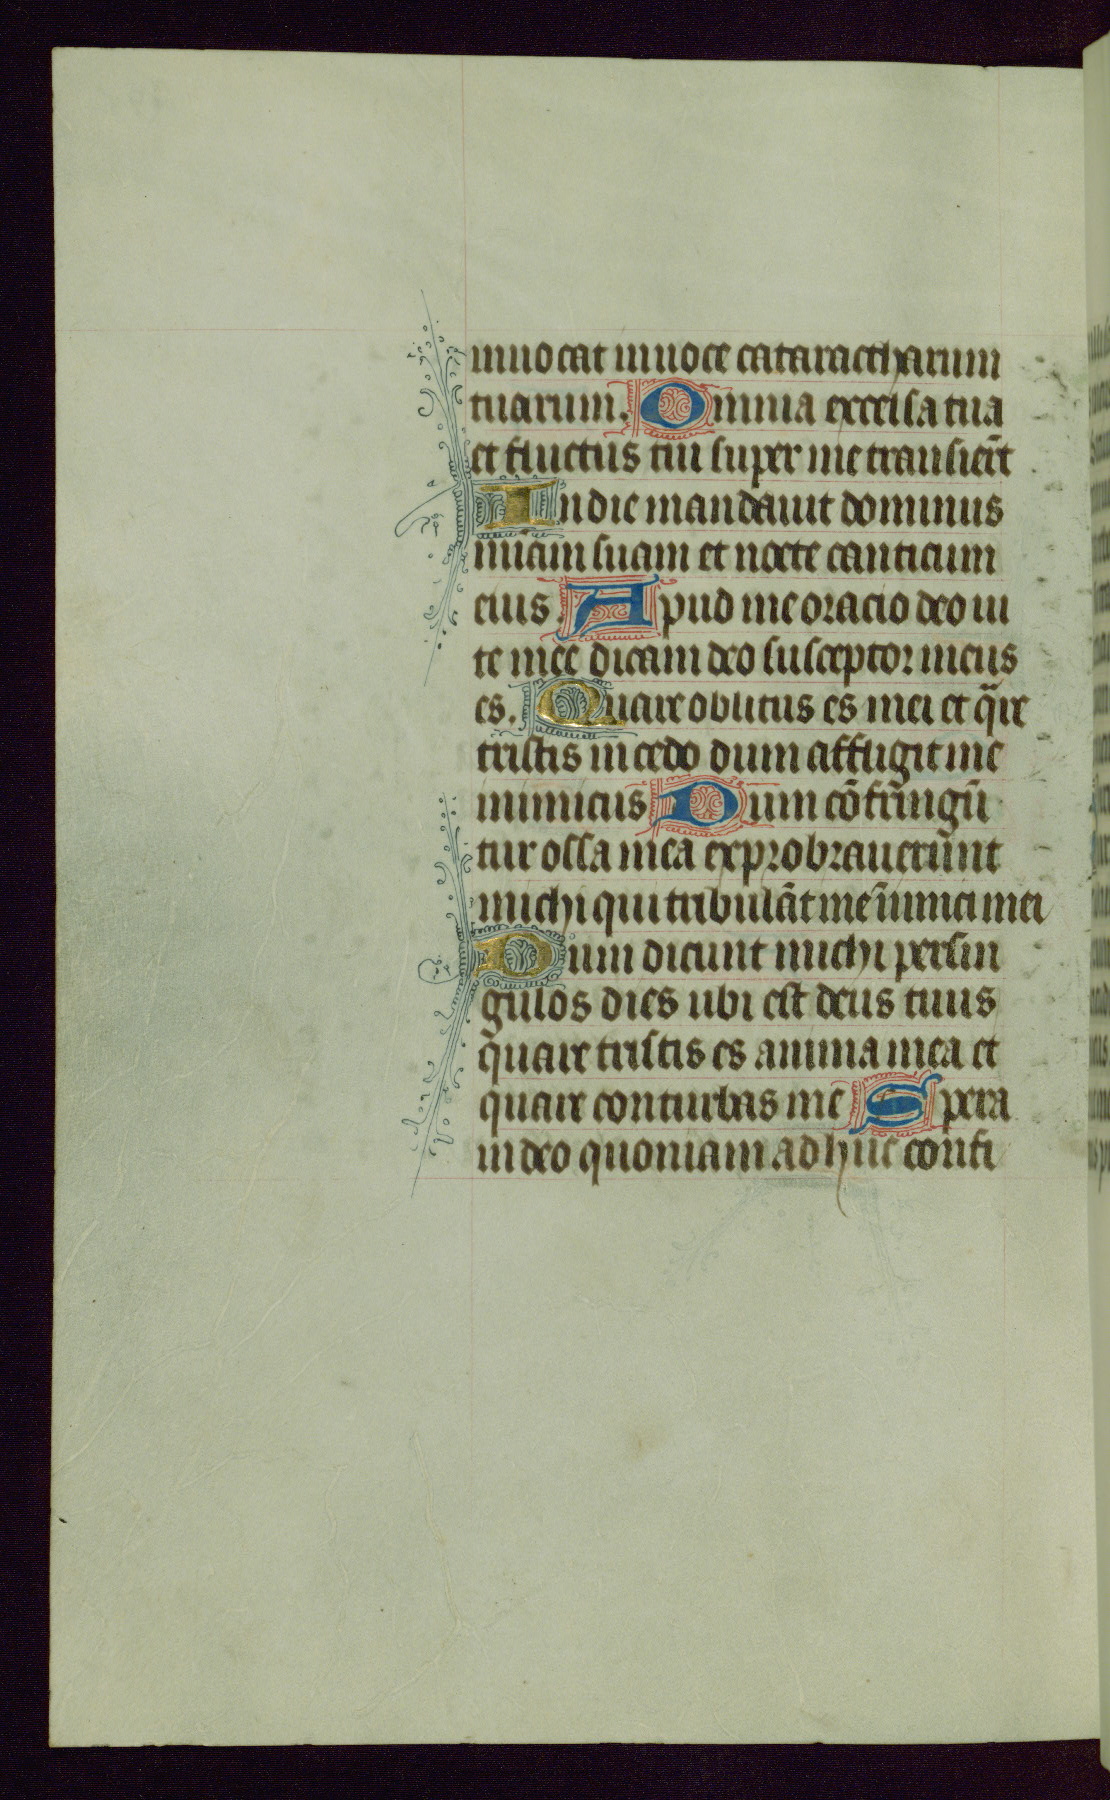 inuocat in uoce cataractharum
tuarum. Omnia excelsa tua
et fluctus tui super me transier̄t
In die mandauit dominus
m̄iam suam et nocte canticum
eius. Apud me oracio deo ui
te mee dicam deo susceptor meus
es. Quare oblitus es mei et q̄re
tristis incedo dum affligit me
inimicus Dum cōfringū
tur ossa mea exprobrauerunt
michi qui tribulāt me inimici mei
Dum dicunt michi per sin
gulos dies ubi est deus tuus
quare tristis es anima mea et
quare conturbas me Spera
in deo quoniam adhuc confi